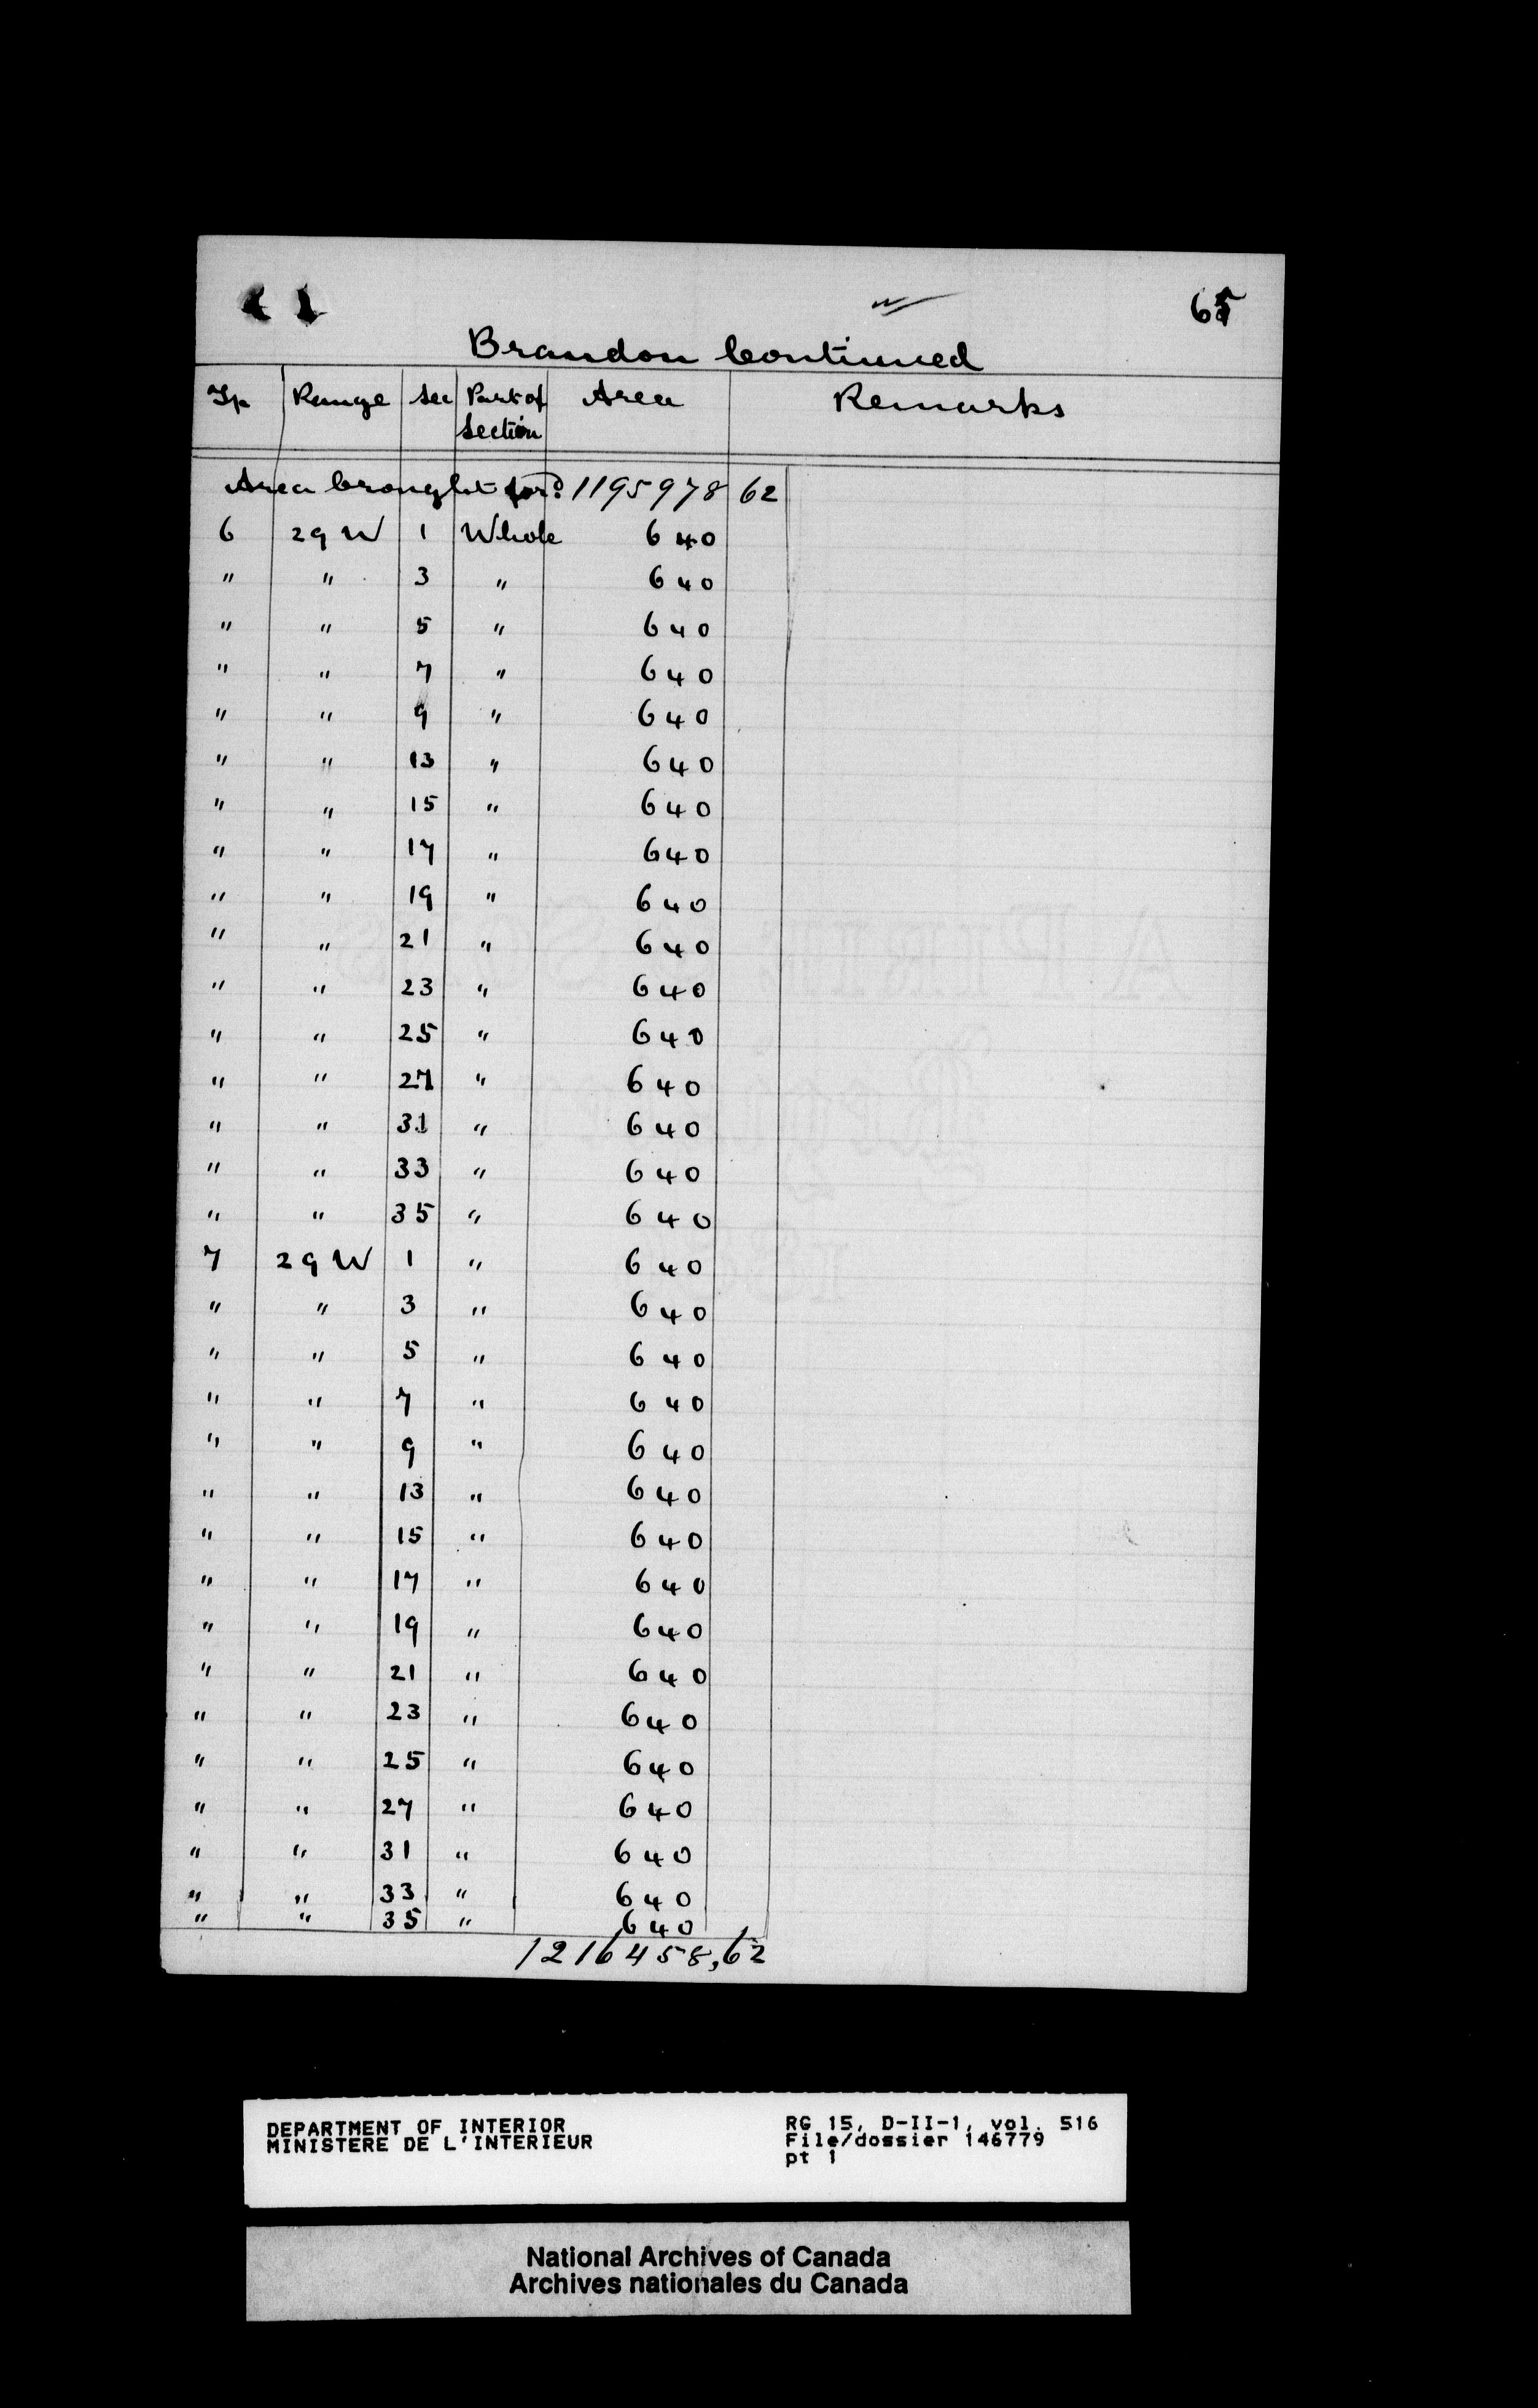 65
Brandon Continued
Tp Range Sec Part of Section Area Remarks
Area brought ford 1195978 62
6 29 W 1 Whole 640
" " 3 " 640
" " 5 " 640
" " 7 " 640
" " 9 " 640
" " 13 " 640
" " 15 " 640
" " 17 " 640
" " 19 " 640
" " 21 " 640
" " 23 " 640
" " 25 " 640
" " 27 " 640
" " 31 " 640
" " 33 " 640
" " 35 " 640
7 29 W 1 " 640
" " 3 " 640
" " 5 " 640
" " 7 " 640
" " 9 " 640
" " 13 " 640
" " 15 " 640
" " 17 " 640
" " 19 " 640
" " 21 " 640
" " 23 " 640
" " 25 " 640
" " 27 " 640
" " 31 " 640
" " 33 " 640
" " 35 " 640
1216458,62
DEPARTMENT OF INTERIOR
MINISTERE DE L'INTERIEUR
RG 15, D-II-1, vol. 516
File/dossier 146779
pt 1
National Archives of Canada
Archives nationales du Canada